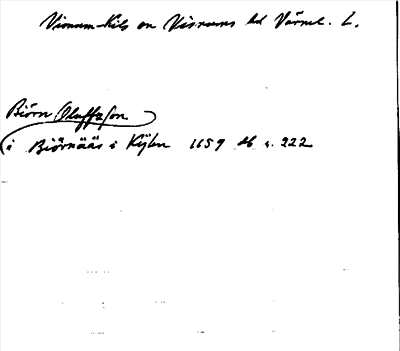 Visnums-Kils sn Visnums hd Värml. L.
Biörn Oluffson
i Biörnääs i Kijln 1659 db s. 222